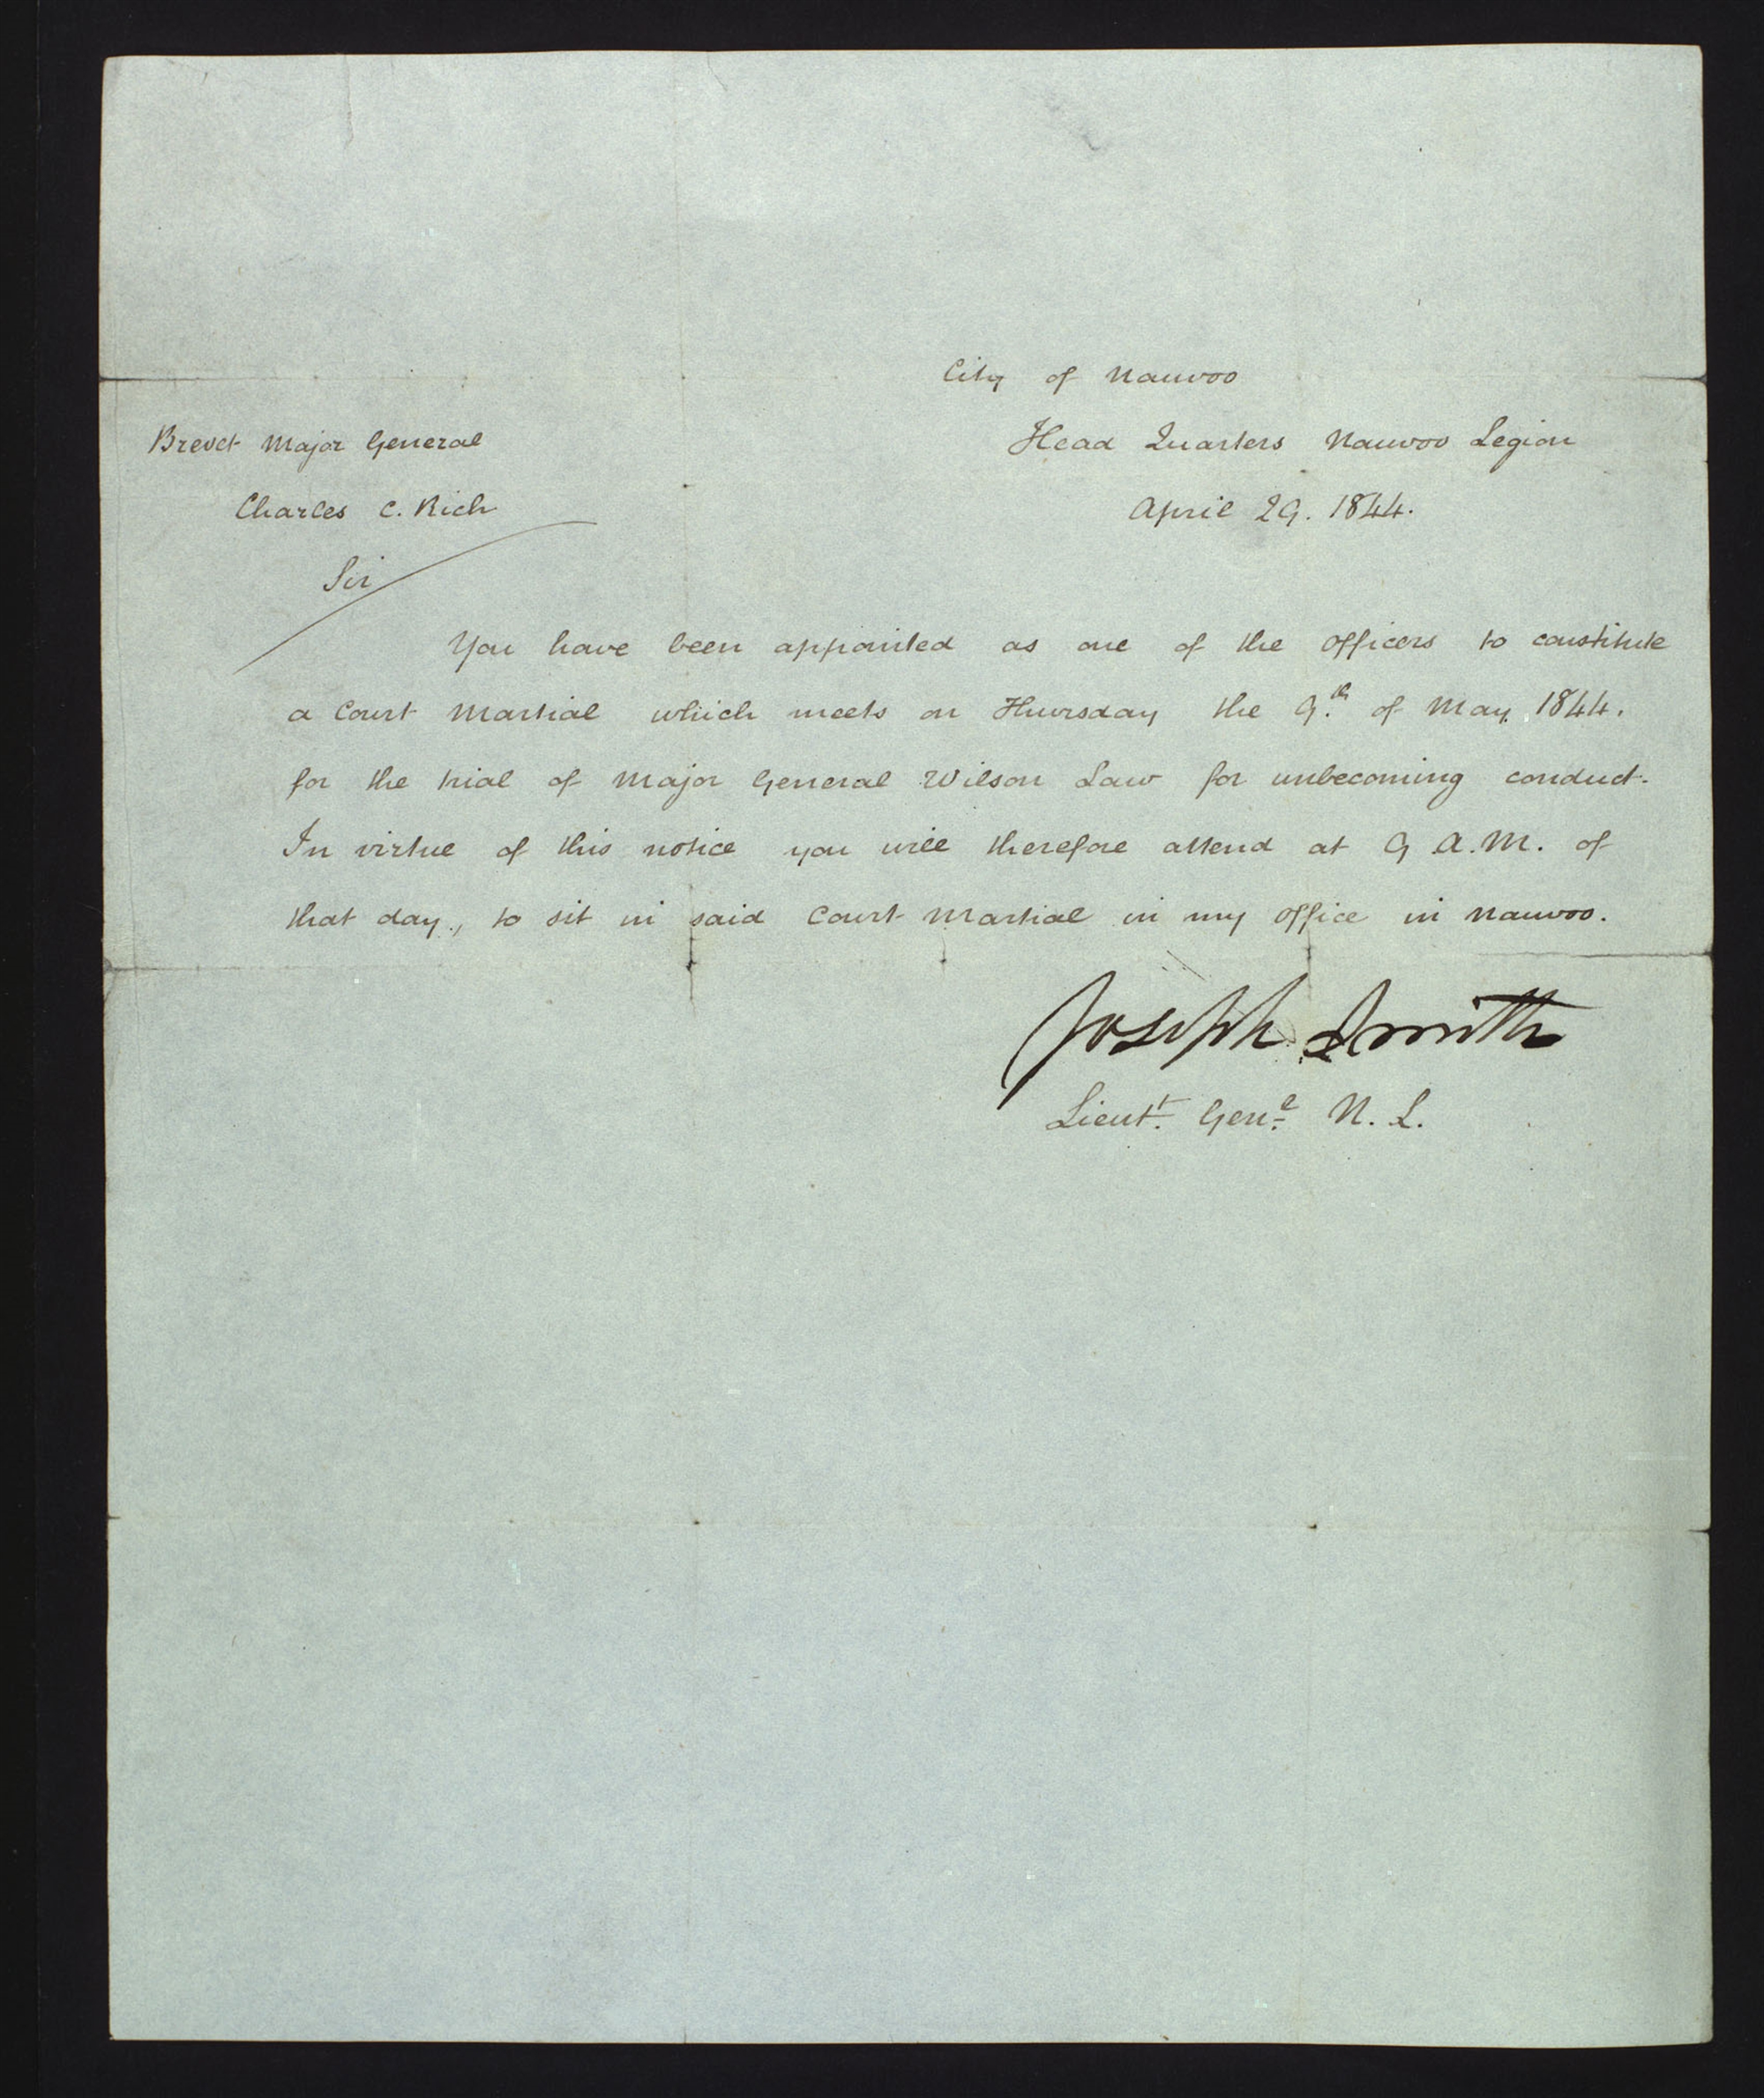 City of Nauvoo
Brevet Major General
Head Quarters Nauvoo Legion
Charles C. Rich
April 29. 1844.
Sir
You have been appointed as one of the officers to constitute
a Court Martial which meets on Thursday the 9.th of May 1844.
for the trial of Major General Wilson Law for unbecoming conduct.
In virtue of this notice you will therefore attend at 9 A.M. of
that day., to sit in said Court Martial in my office in Nauvoo.
Joseph Smith
Lieut.t Gen.l N. L.